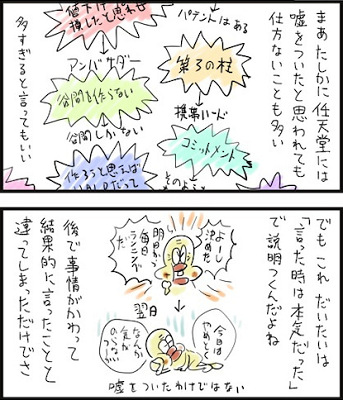 まあたしかに任天堂には
嘘をついたと思われても
仕方ないことも多い
パテントはある
第3の柱
携帯ハード
コミットメント
値下げ
損したと思わせ
アンバサダー
谷間を作らない
谷間しかない
作ろうと思えば
多すぎると言ってもいい
でも これ だいたいは
「言った時は本気だった」
で説明つくんだよね
よーし
決めた
明日から
毎日
ランニング
だ
翌日
今日は
やめとく
なんか
気が
のらない
嘘をついたわけではない
後で事情がかわって
結果的に言ったことと
違ってしまっただけでさ